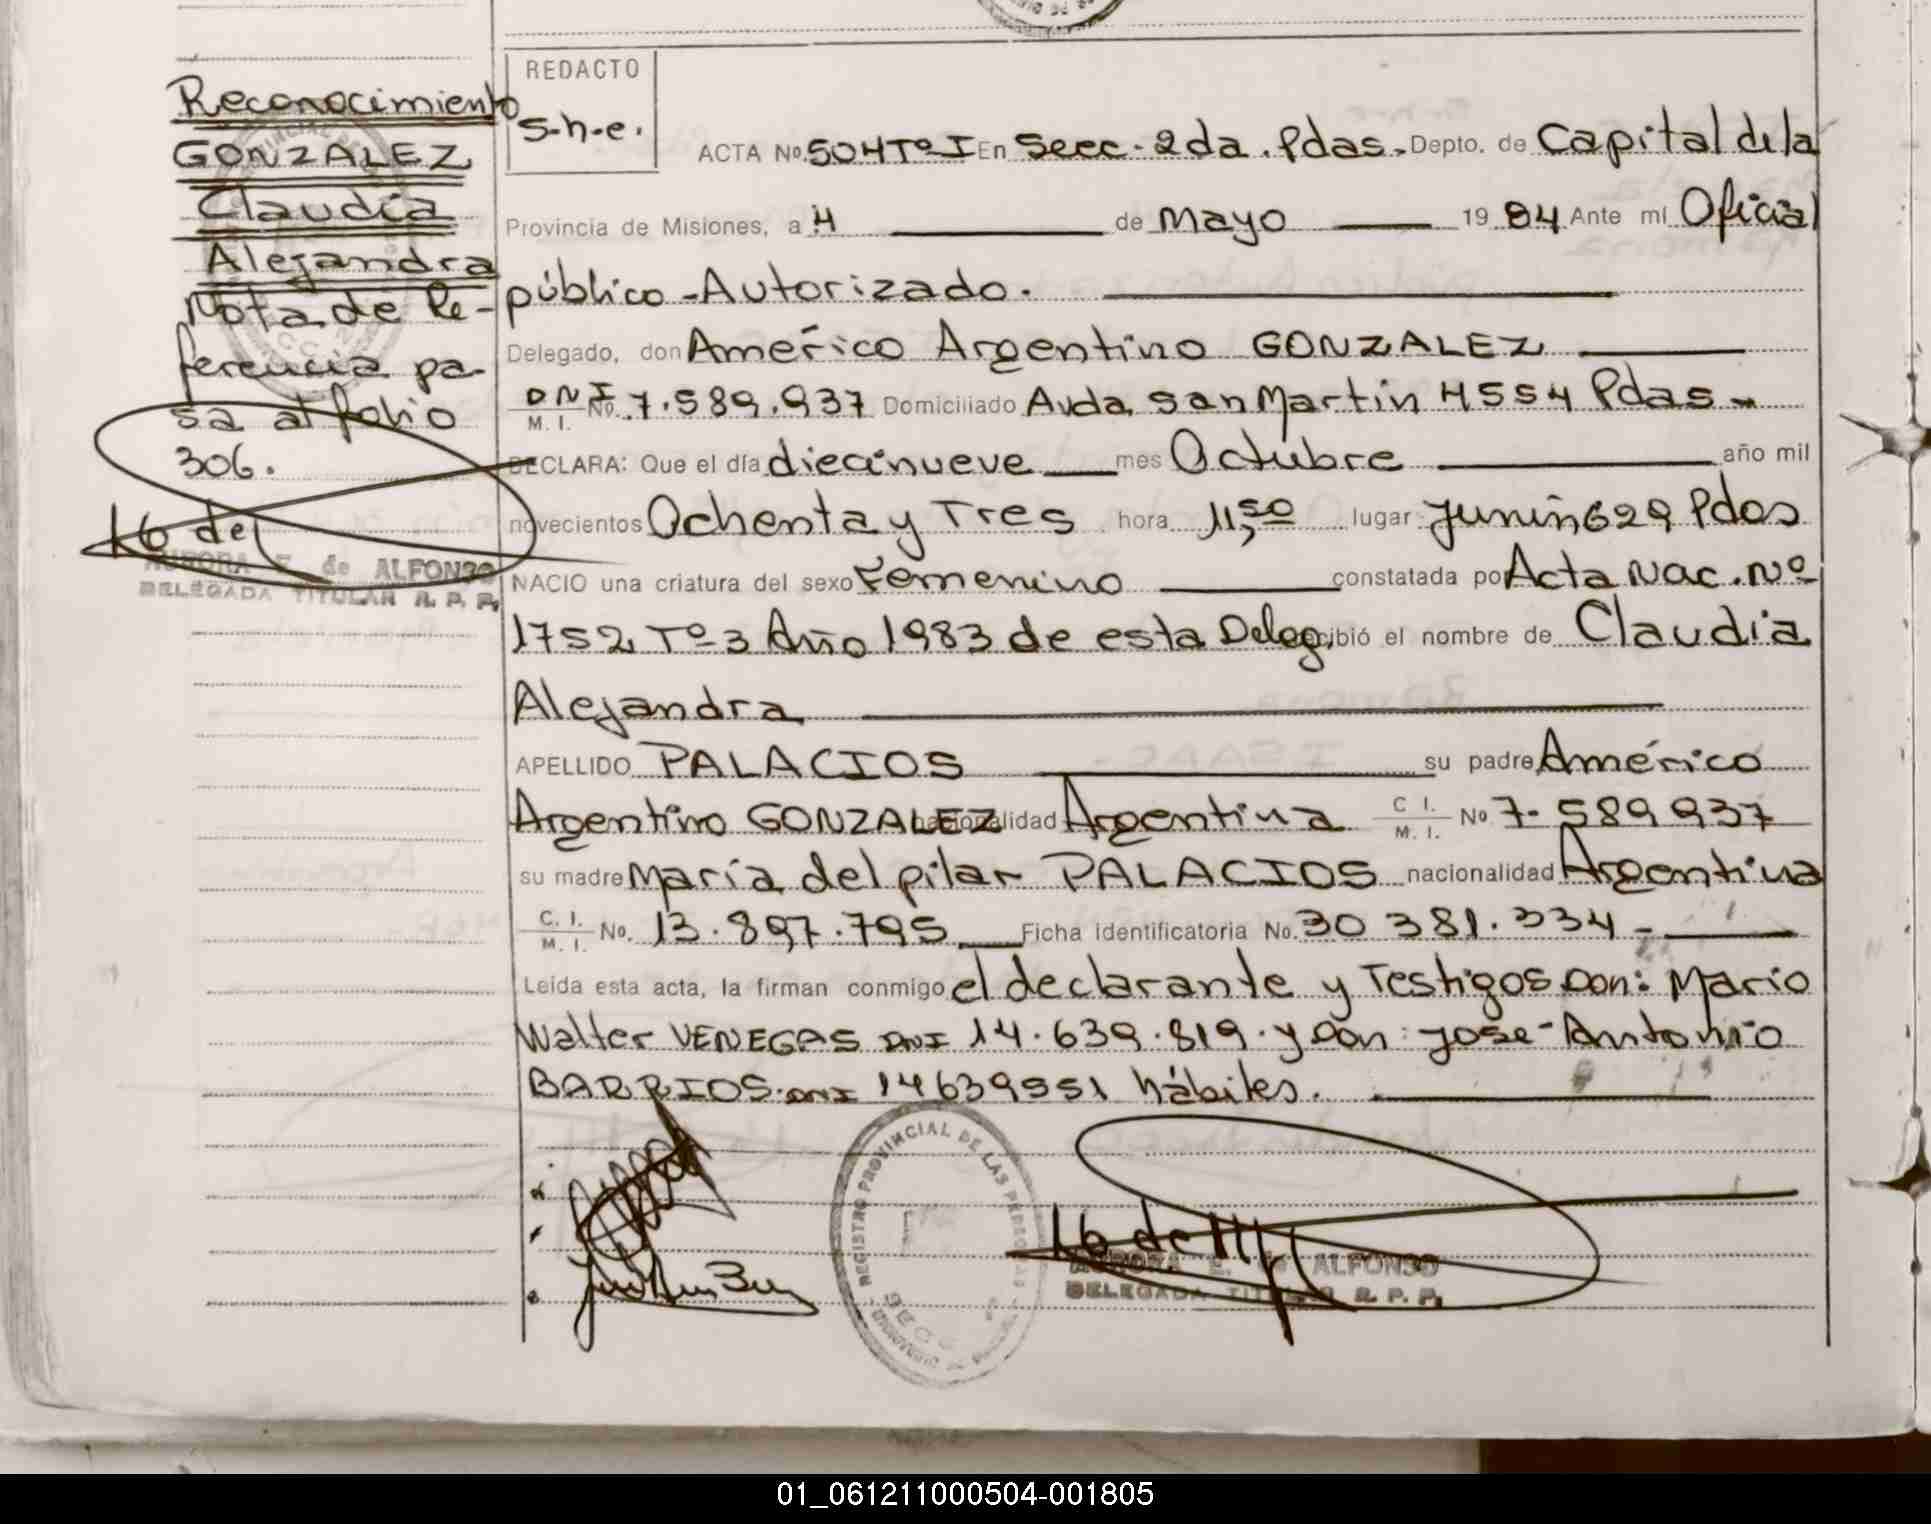 Reconocimiento
GONZALEZ
Claudia
Alejandra
Nota de Re-
ferencia pa-
sa al folio
306.
AURORA E. de ALFONSO
DELEGADA TITULAR R. P. P.
REDACTO
S-h-e.
ACTA No. 504 Tº I En Secc. 2da. Pdas. Depto. de Capital de la
Provincia de Misiones, a 4 de Mayo 19 84 Ante mí Oficial
público - Autorizado.
Delegado, don Américo Argentino GONZALEZ
DNI M. I. No. 7.589.937 Domiciliado Avda. San Martín 4554 Pdas -
DECLARA: Que el día diecinueve mes Octubre año mil
novecientos Ochenta y Tres hora 11,50 lugar Junín 629 Pdas
NACIO una criatura del sexo Femenino constatada por Acta Nac. Nº
1752 Tº 3 Año 1983 de esta Deleg. recibió el nombre de Claudia
Alejandra
APELLIDO PALACIOS su padre Américo
Argentino GONZALEZ nacionalidad Argentina C. I. M. I. No 7.589937
su madre María del pilar PALACIOS nacionalidad Argentina
C. I. M. I. No. 13.897.795 Ficha identificatoria No. 30 381.334 -
Leída esta acta, la firman conmigo el declarante y Testigos Don: Mario
Walter VENEGAS DNI 14.639.819. y Don: José Antonio
BARRIOS. DNI 14639551 hábiles.
REGISTRO PROVINCIAL DE LAS PERSONAS
AURORA E. de ALFONSO
DELEGADA TITULAR R. P. P.
01_061211000504-001805